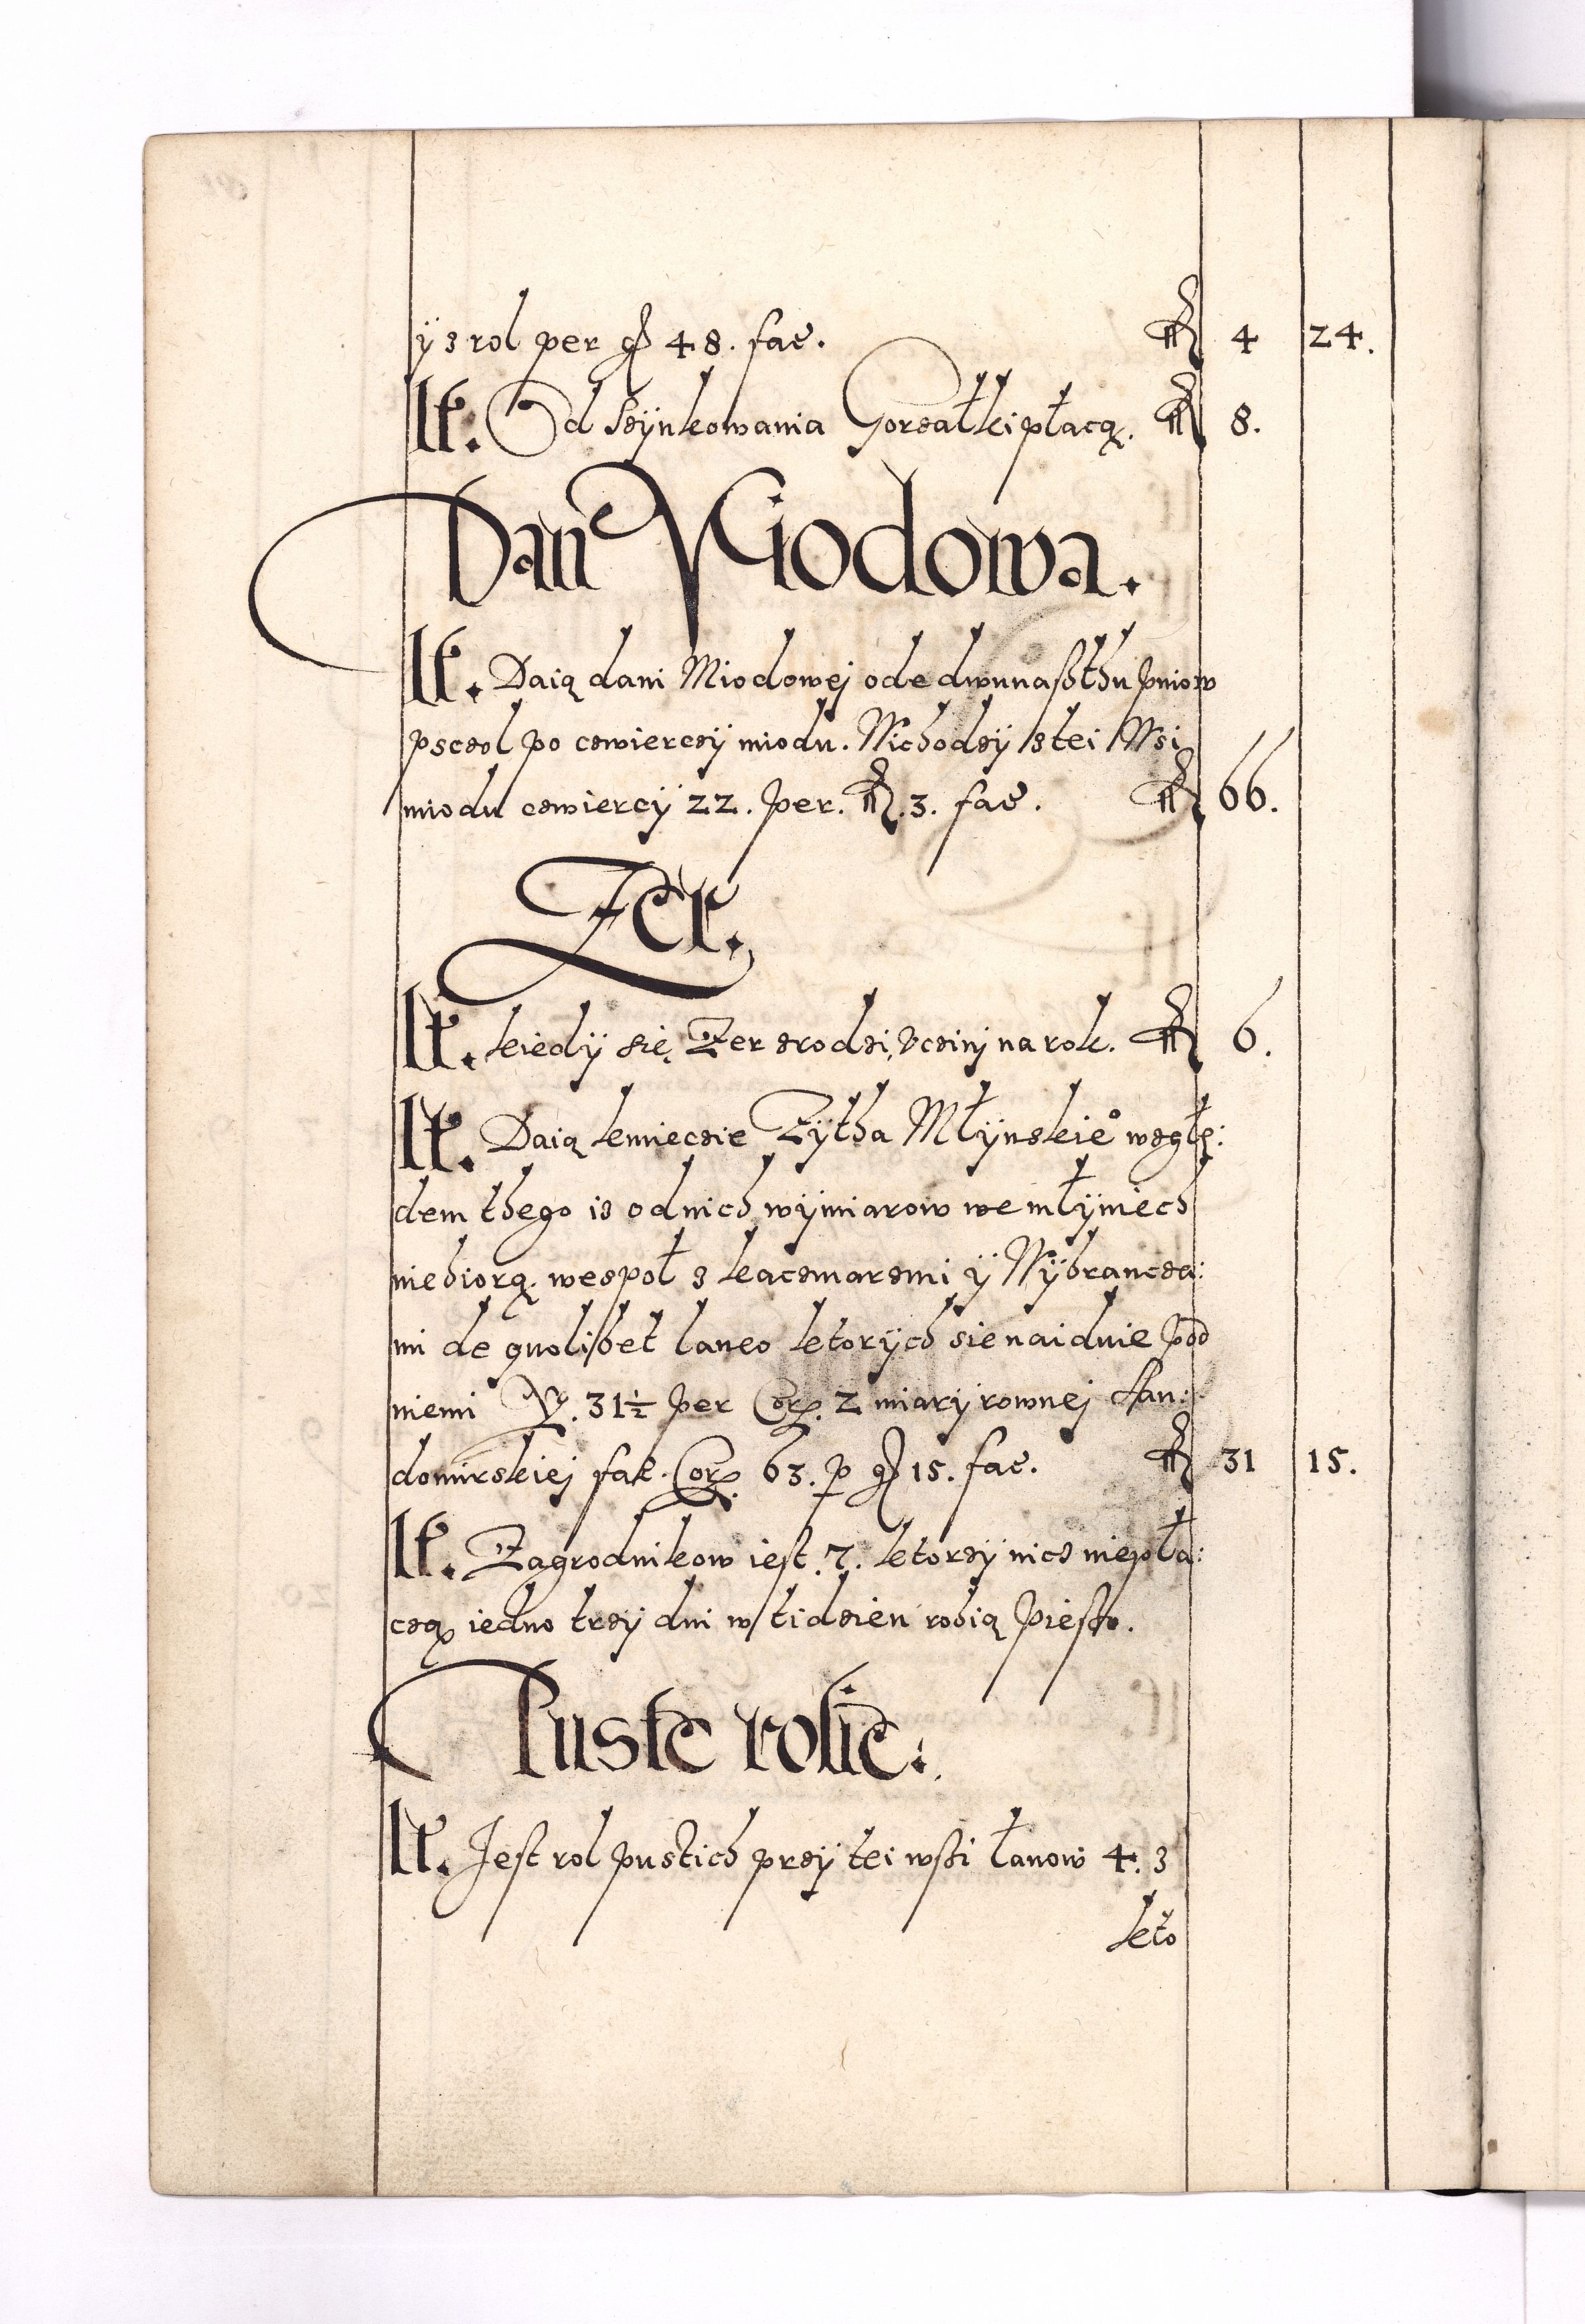 ÿ z rol per gr 48. fac. fl 4 24.
It. Od szÿnkowania Gorzałki płacą. fl 8.
Dań Miodowa.
It. Daią dani Miodowej ode dwunaßthu pniow
psczol po czwierczÿ miodu. Wichodzÿ s tei Wsi
miodu czwierczÿ 22. per. fl. 3. fac. fl 66.
Zer.
It. kiedÿ się Zer zrodzi, vczinj na rok. fl 6.
It. Daią kmieczie Zÿtha Młÿnskie° wzglę:
dem thego iz od nich wÿmiarow we młÿniech
niebiorą, wespoł z kaczmarzmi ÿ Wÿbrancza:
mi de quolibet laneo ktorÿch sie naiduie pod
niemi V. 31½ per Cor. 2 miarÿ rownej San:
domirskiej fac. Cor. 63. p gr 15. fac. fl 31 15.
It. Zagrodnikow iest. 7. ktorzÿ nicz niepła:
czą iedno trzÿ dni w tidzien robią pieszo.
Puste rolie.
It. Jest rol pustich przÿ tei wßi łanow 4. z
kto